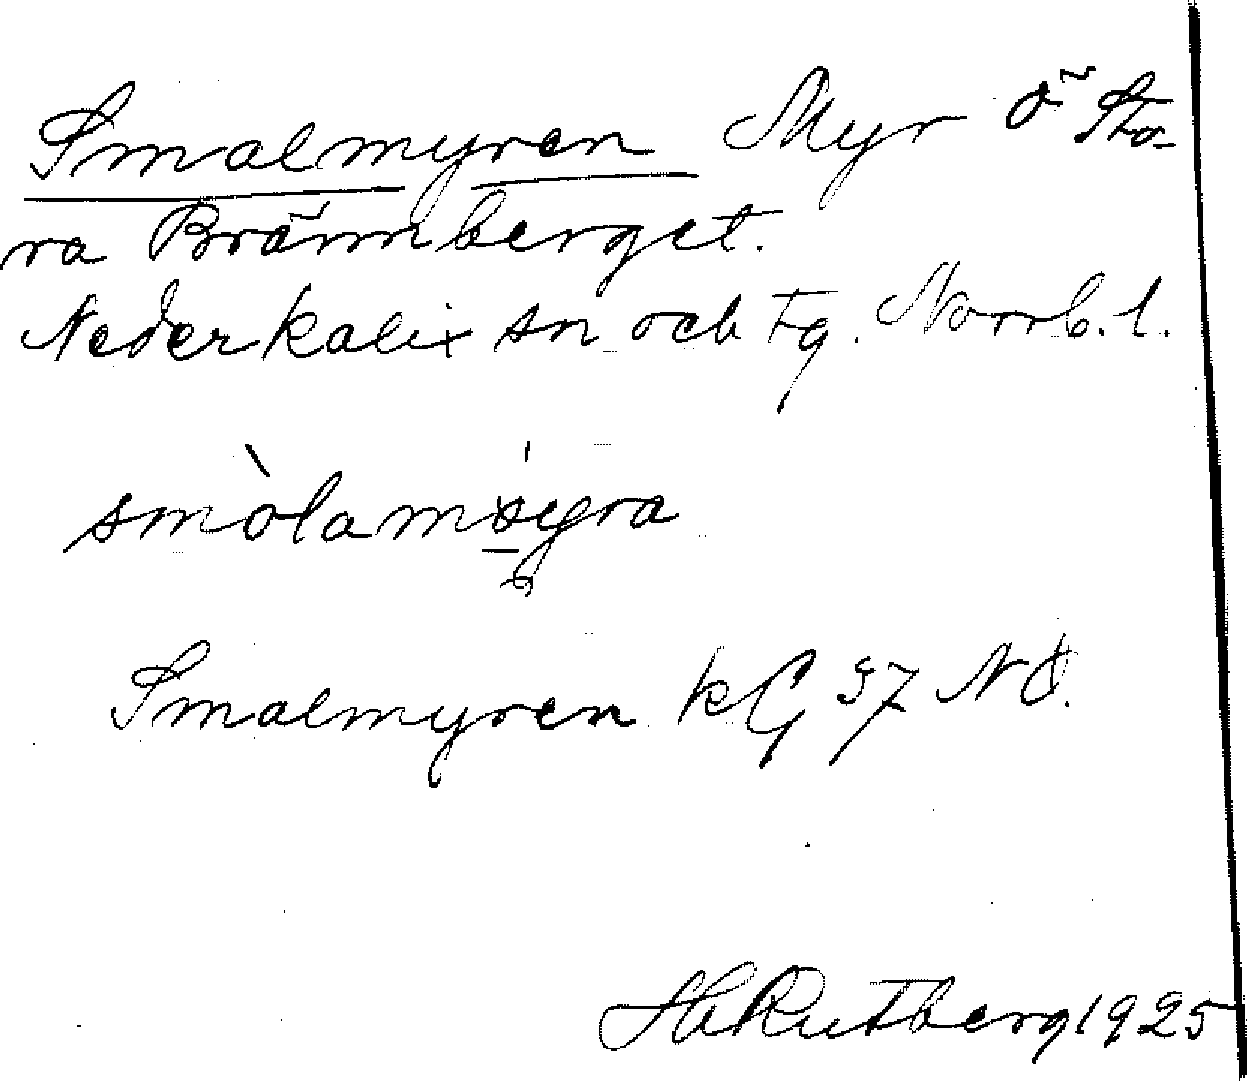 Smalmyren Myr Ö Sto-
ra Brännberget.
Nederkalix sn och tg. Norrb. l.
smòlam
Smalmyren kG 37 NÖ.
Hj Rutberg 1925